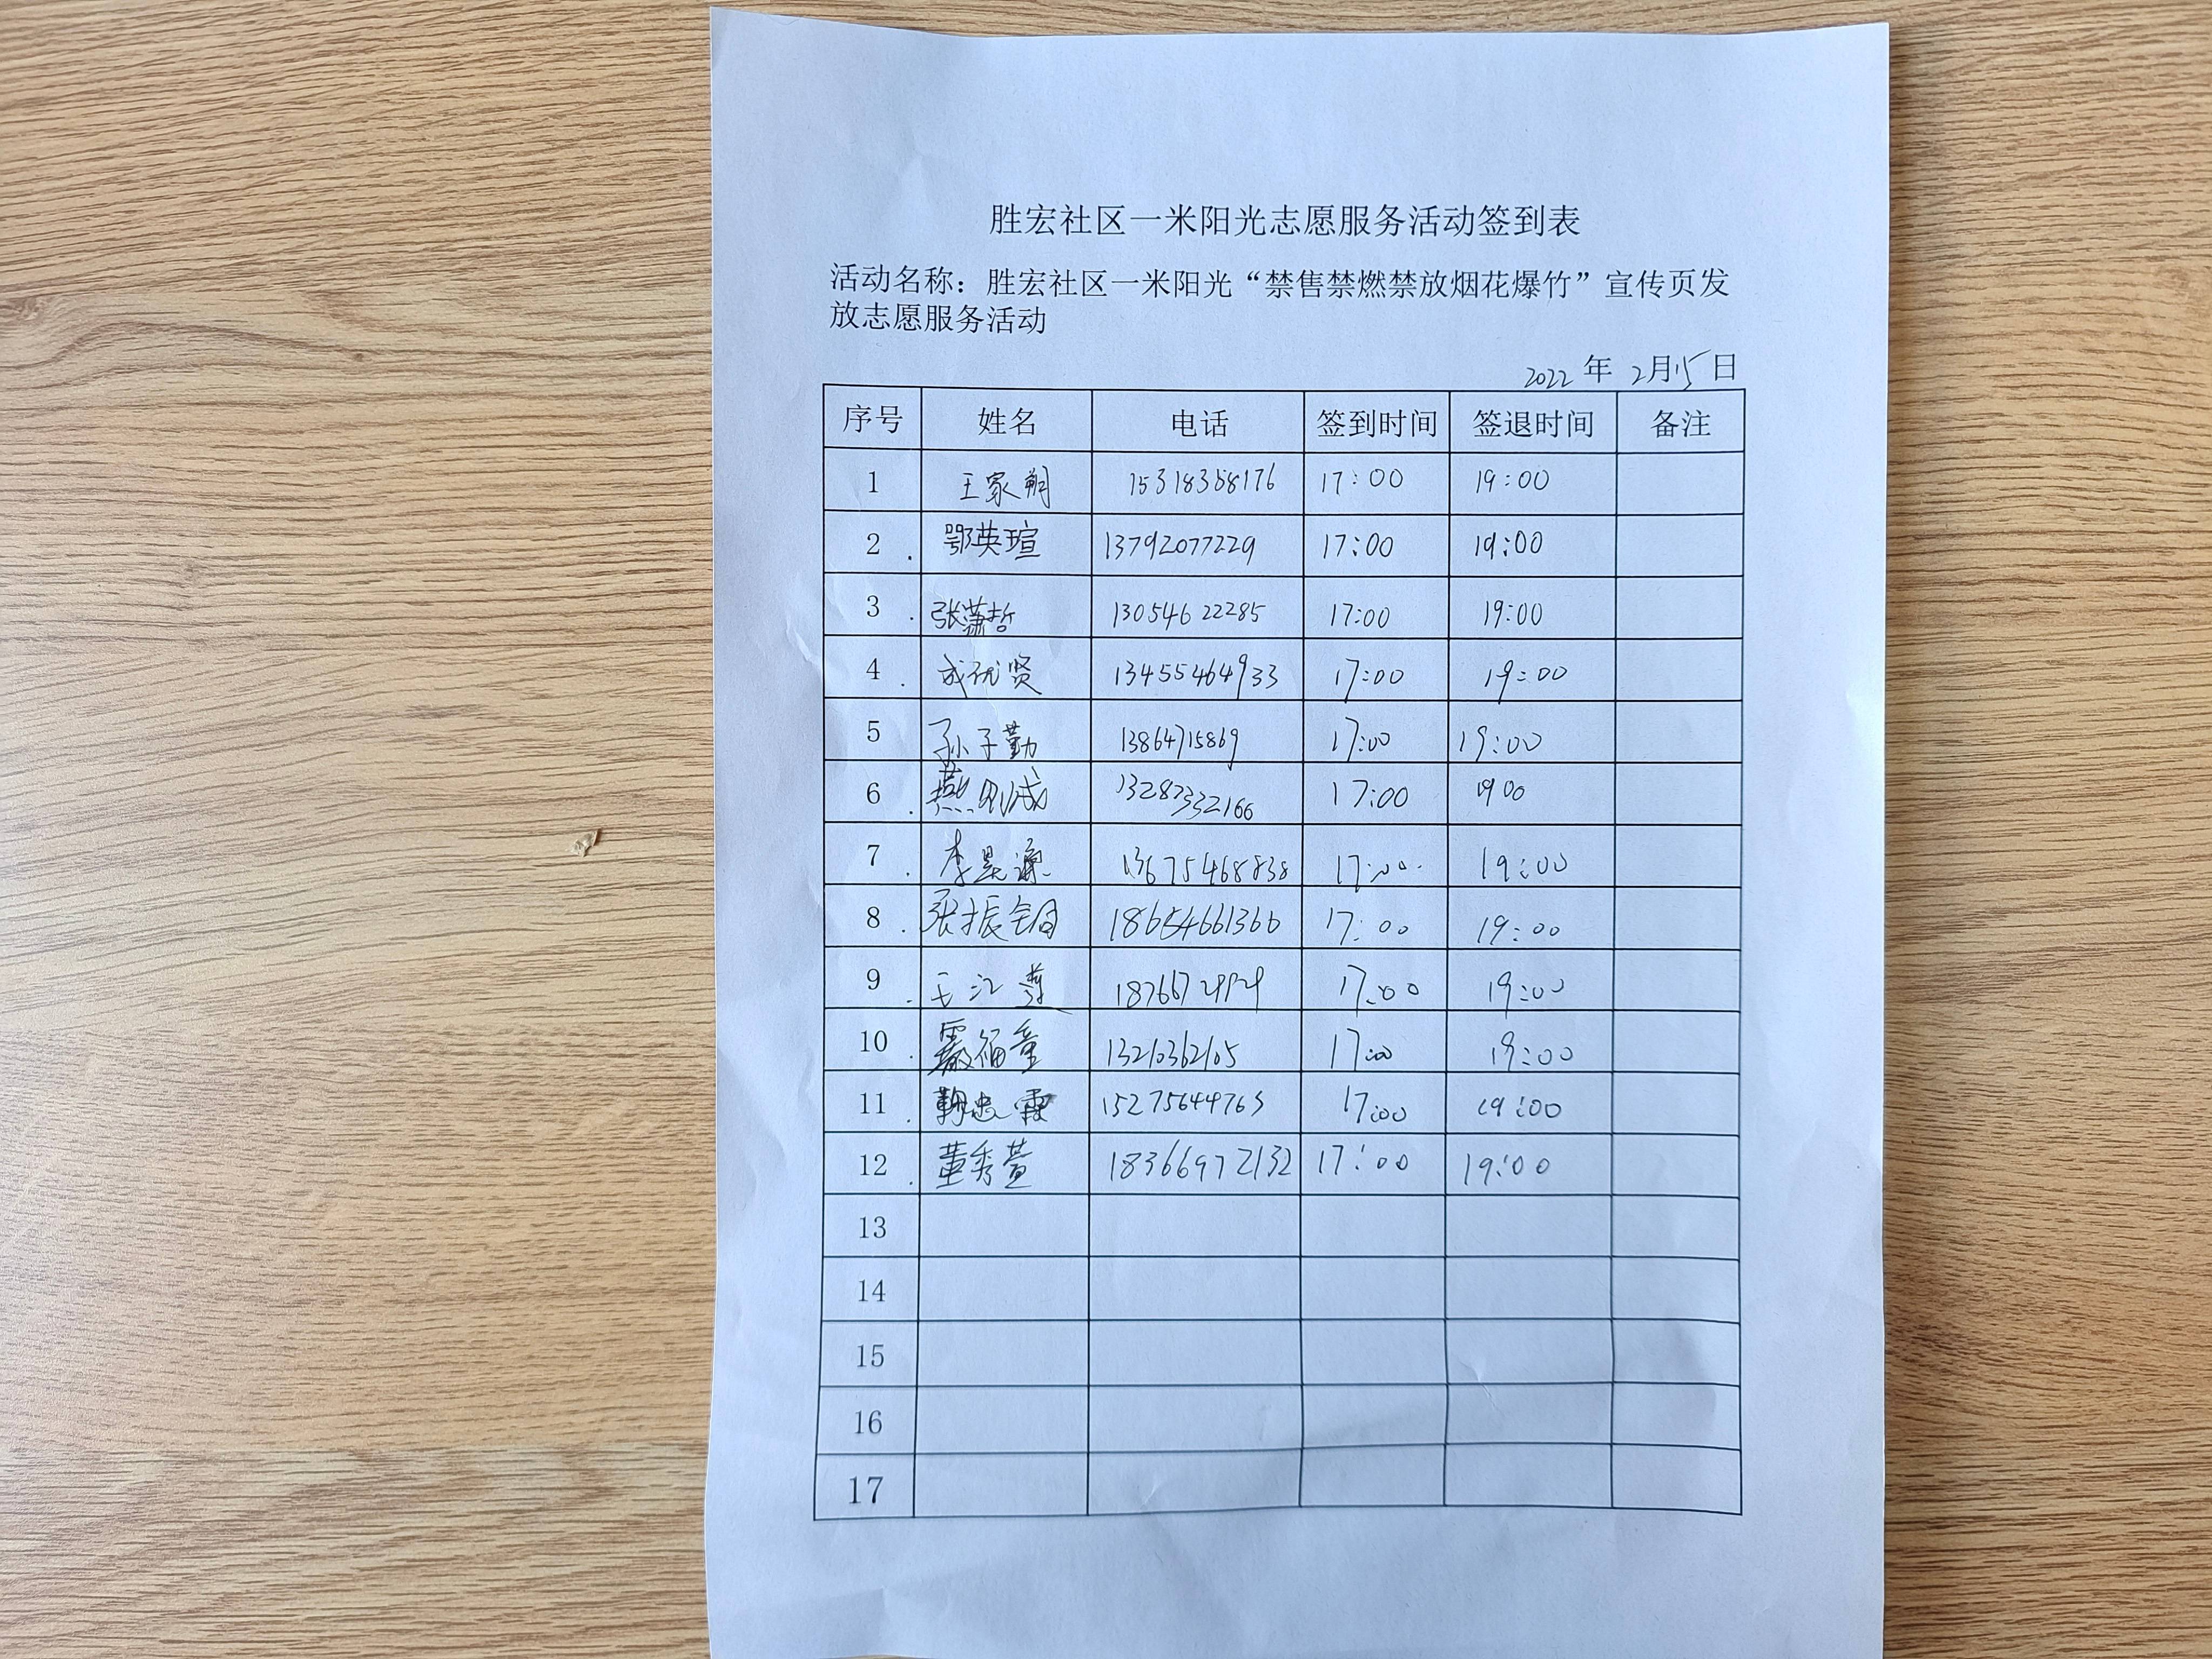 胜宏社区一米阳光志愿服务活动签到表
活动名称：胜宏社区一米阳光“禁售禁燃禁放烟花爆竹”宣传页发
放志愿服务活动
2022 年 2月15日
序号 姓名 电话 签到时间 签退时间 备注
1 王家朔 15318358176 17:00 19:00
2 鄂英瑄 13792077229 17:00 19:00
3 张潇哲 13054622285 17:00 19:00
4 成优贤 13455464933 17:00 19:00
5 孙子勤 13864715869 17:00 19:00
6 燕 13287332166 17:00 19 00
7 李昊谦 13675468838 17:00 19:00
8 张振 18654661366 17:00 19:00
9 王江 17:00 19:00
10 福童 13210362105 17:00 19:00
11 17:00 19:00
12 董秀萱 18366972132 17:00 19:00
13
14
15
16
17